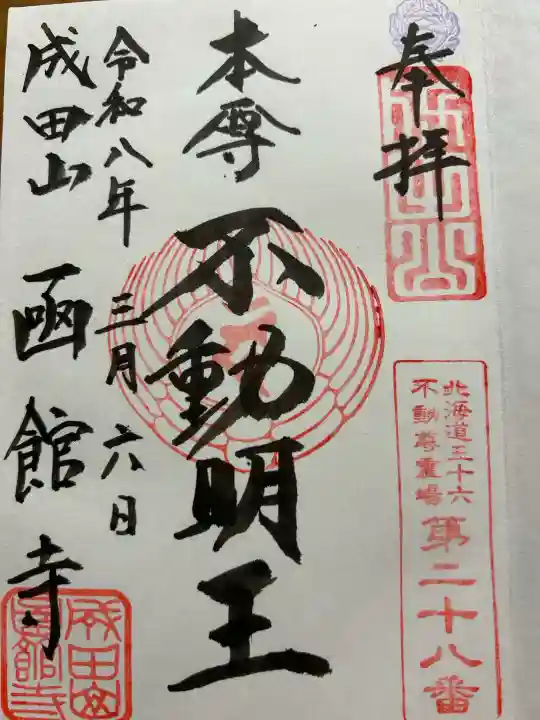 奉拝
北海道三十六
不動尊霊場
第二十八番
本尊 不動明王
令和八年 三月 六日
成田山 函館寺
成田山
函館寺